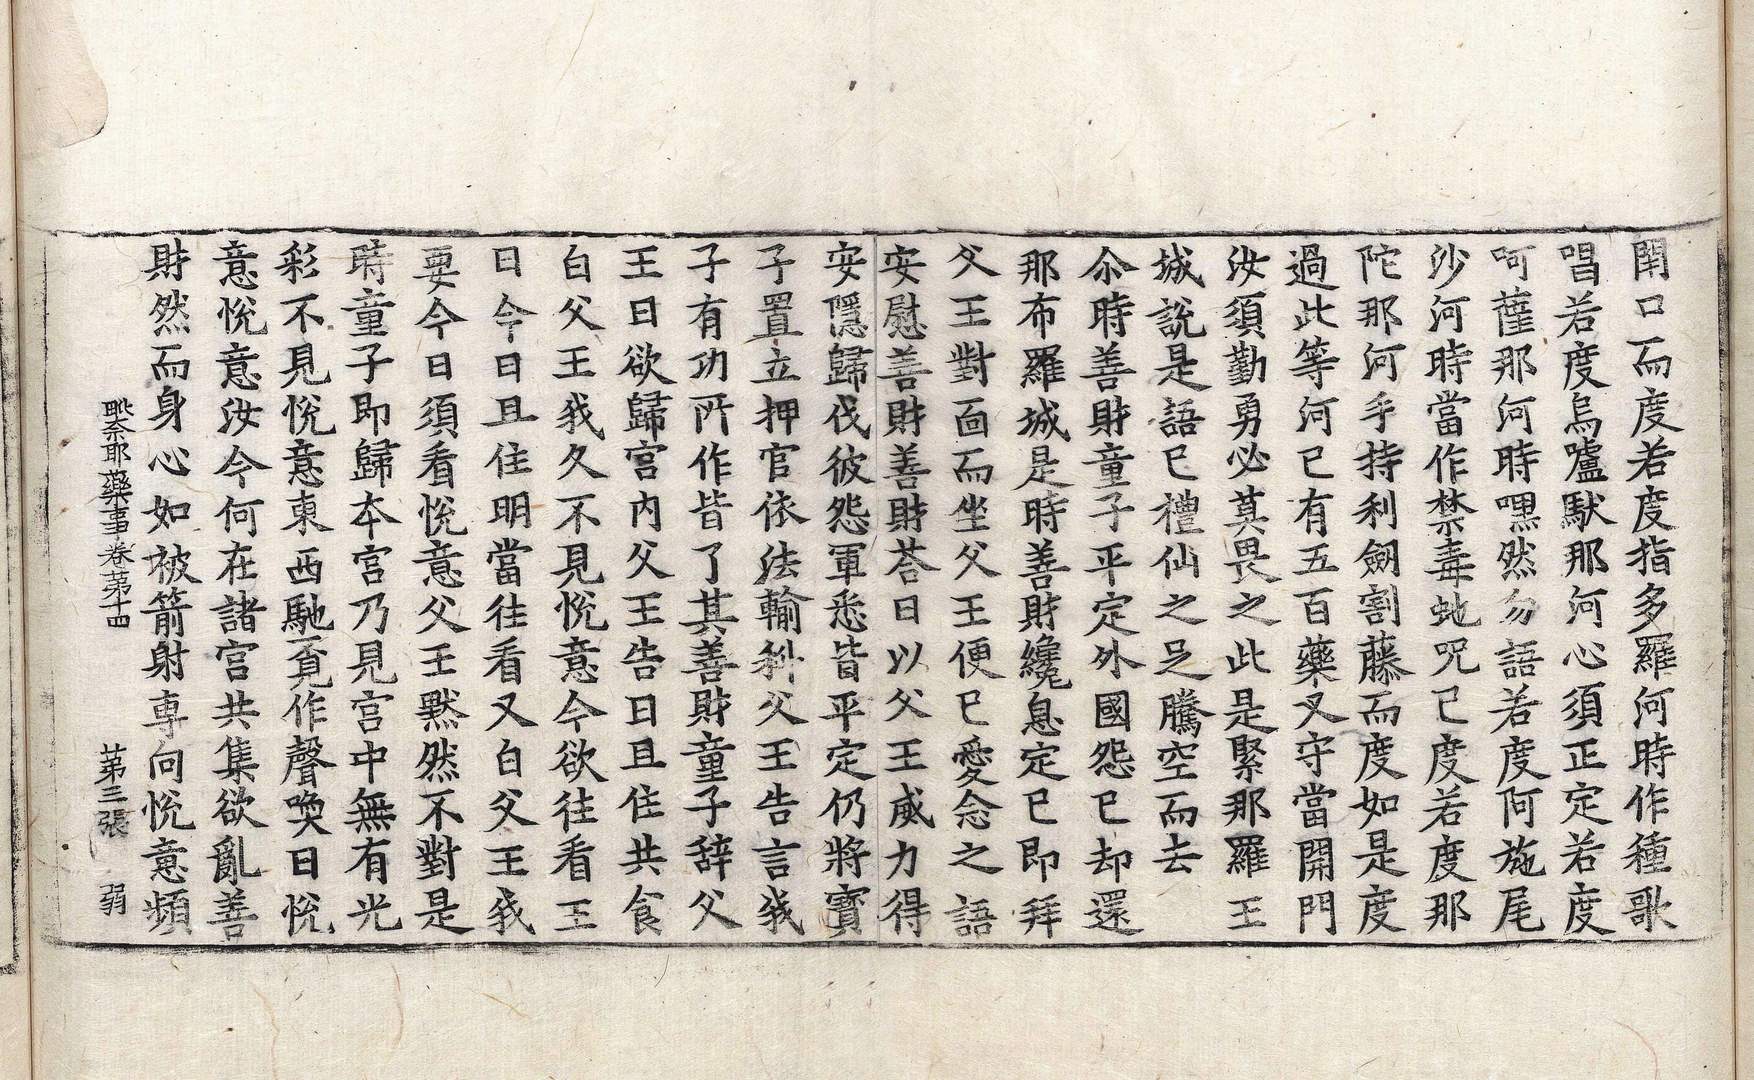 開口而度若度指多羅河時作種歌
唱若度烏嚧馱那河心須正定若度
呵薩那河時嘿然勿語若度阿施尾
沙河時當作禁毒虵呪已度若度那
陀那河手持利劒割藤而度如是度
過此等河已有五百藥叉守當開門
汝須勤勇必莫畏之此是緊那羅王
城說是語已禮仙之足騰空而去
尒時善財童子平定外國怨已却還
那布羅城是時善財纔息定已即拜
父王對面而坐父王便已愛念之語
安慰善財善財荅曰以父王威力得
安隱歸伐彼怨軍悉皆平定仍將寶
子置立押官依法輸科父王告言我
子有功所作皆了其善財童子辞父
王曰欲歸宮內父王告曰且住共食
白父王我久不見悅意今欲往看王
曰今日且住明當往看又白父王我
要今日須看悅意父王默然不對是
時童子即歸本宮乃見宮中無有光
彩不見悅意東西馳覓作聲喚曰悅
意悅意汝今何在諸宮共集欲亂善
財然而身心如被箭射専向悅意頻
毗奈耶藥事卷第十四 第三張 弱